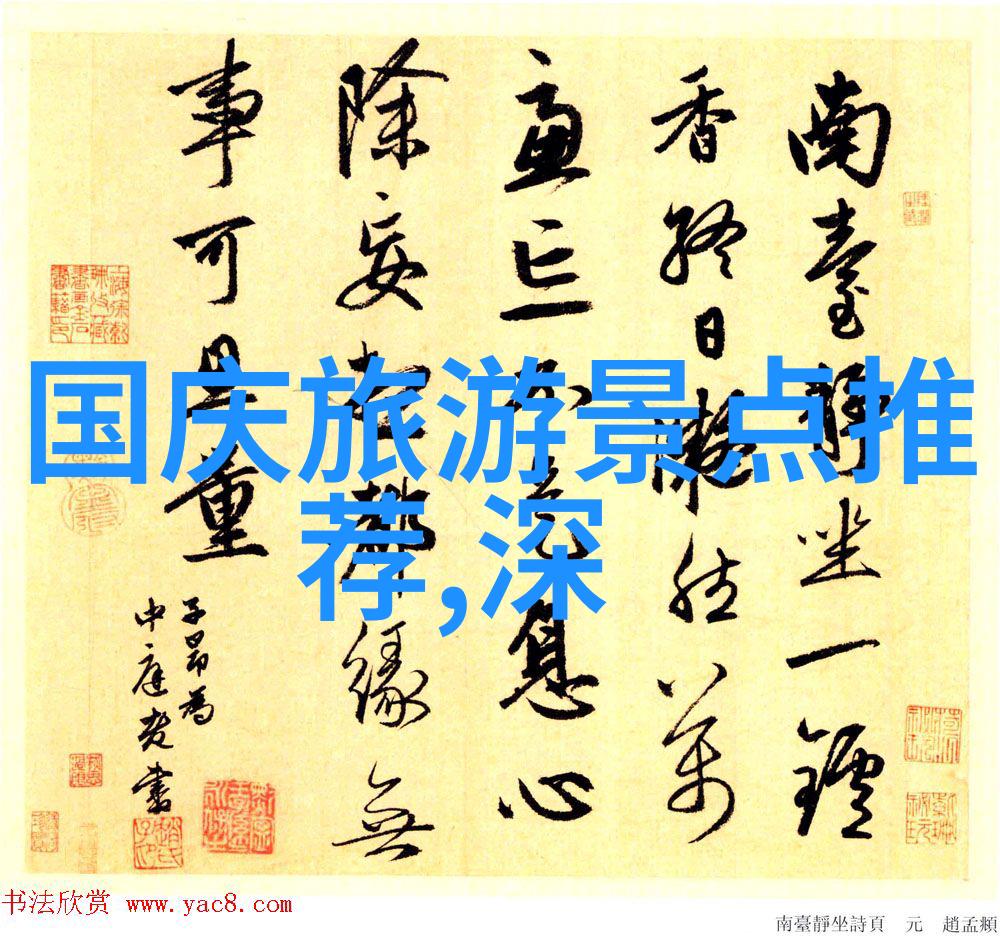 国庆旅游景点推
荐,深
南臺靜坐一鑪
香終日凝然萬
慮忘不是息心
除妄想都緣無
事可量
子昂為
中庭老書
书法欣赏 www.yac8.com
南臺靜坐詩頁 元 趙孟頫